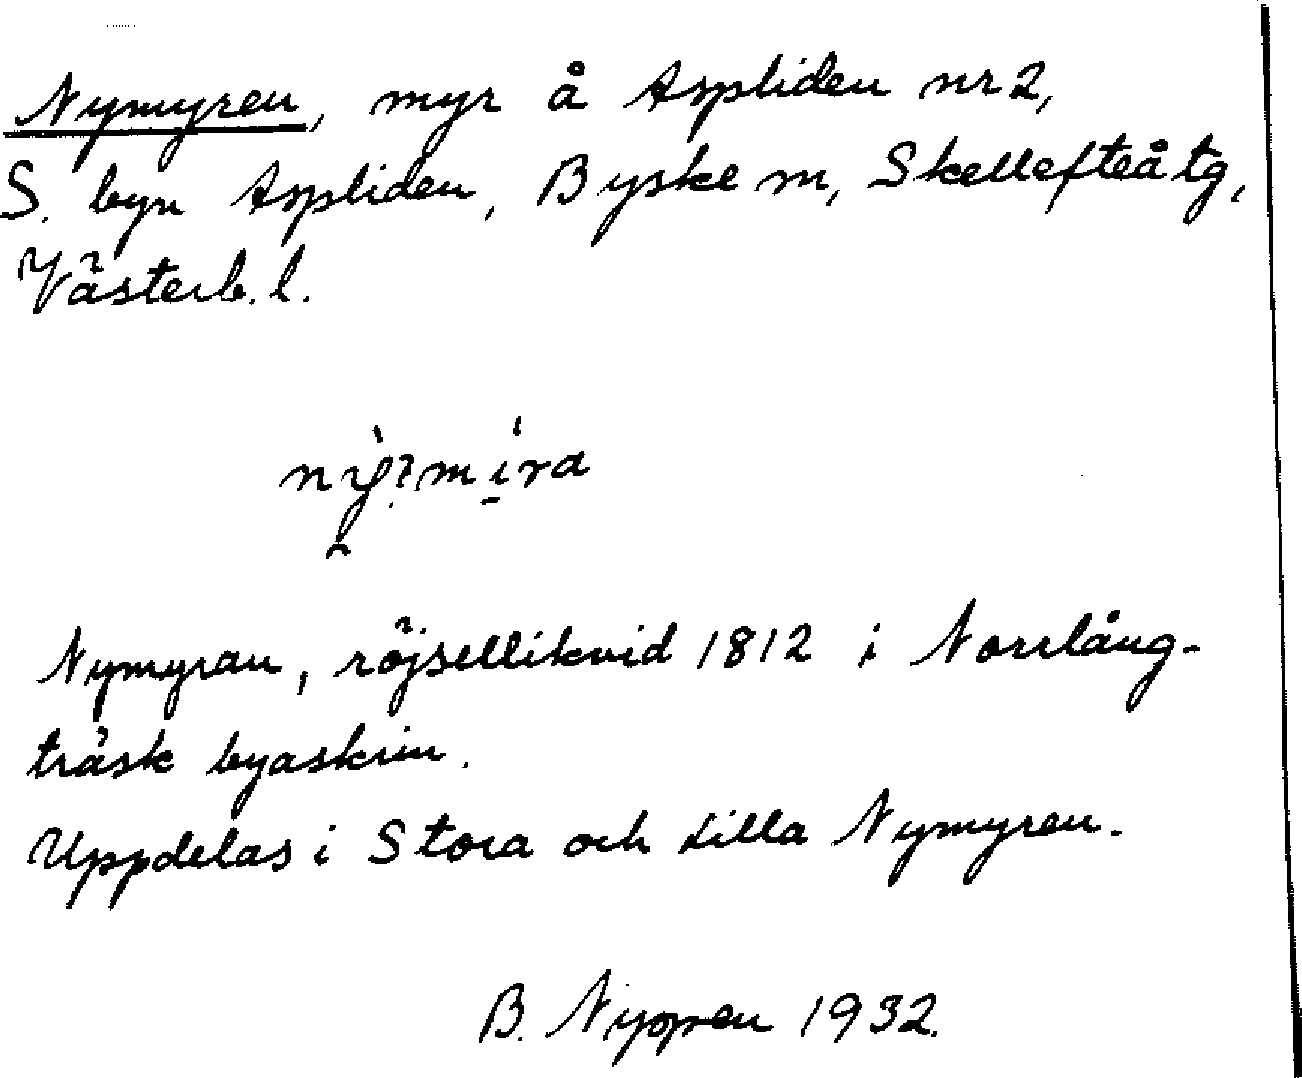 Nymyren, myr å Aspliden nr 2,
S. byn Aspliden, Byske sn, Skellefteå tg,
Västerb. l.
Nymyran, röjsellikvid 1812 i Norrlång-
träsk byaskrin.
Uppdelas i Stora och Lilla Nymyren.
B. 1932.